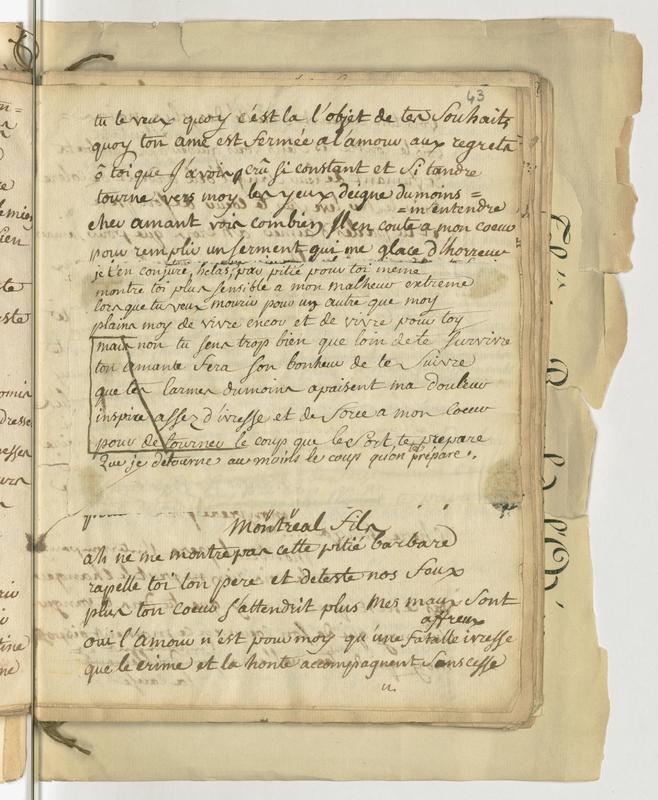 43
tu le veux quoy c'est la l'objet de tes Souhaits
quoy ton ame est fermée a l'amour aux regrets
ô toi que J'avois crû Si constant et Si tandre
tourne vers moy les yeux deigne dumoins =
= m'entendre
cher amant vois combien Il en coute a mon coeur
pour remplir un serment qui me glace d'horreur
je t'en conjure, helas, par pitié pour toi meme
montre toi plus sensible a mon malheur extreme
lors que tu veux mourir pour un autre que moy
plains moy de vivre encor et de vivre pour toy
mais non tu sens trop bien que loin de te Survivre
ton amante fera Son bonheur de te Suivre
que les larmes dumoins apaisent ma douleur
inspire assez d'ivresse et de force a mon Coeur
pour detourner le coup que le Sort te prepare
Que je détourne au moins le coup qu'on prépare.
Montréal fils
ah ne me montre pas cette pitié barbare
rapelle toi ton pere et deteste nos feux
plus ton coeur s'attendrit plus mes maux Sont
affreux
oui l'Amour n'est pour moy qu'une fatalle ivresse
que le crime et la honte accompagnent Sanscesse